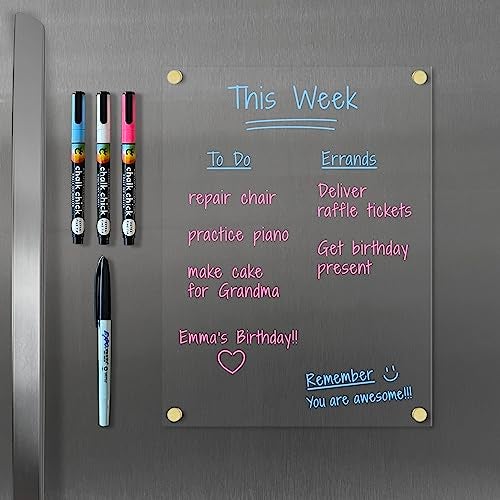 This Week
To Do
repair chair
practice piano
make cake
for Grandma
Emma's Birthday!!
Errands
Deliver
raffle tickets
Get birthday
present
Remember
You are awesome!!!
chalk chick
chalk chick
chalk chick